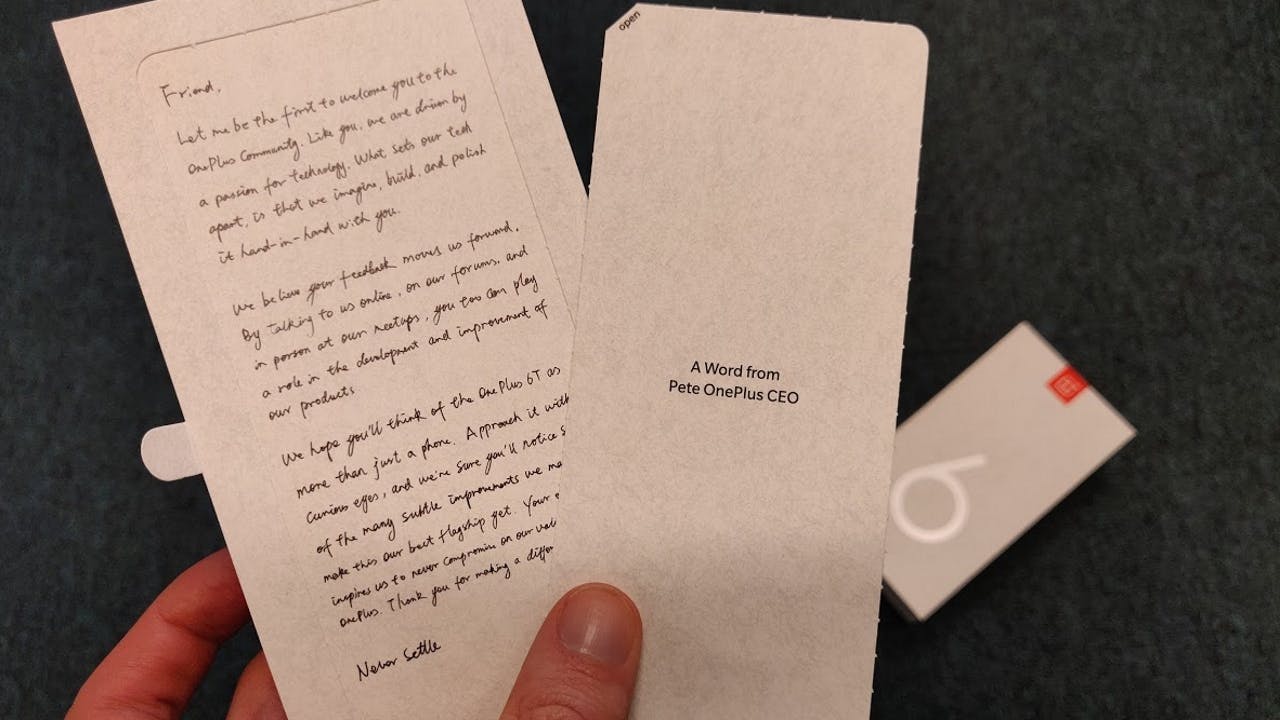 Friend,
Let me be the first to welcome you to the
OnePlus Community. Like you, we are driven by
a passion for technology. What sets our tech
apart, is that we imagine, build, and polish
it hand-in-hand with you.
We believe your feedback moves us forward.
By talking to us online, on our forums, and
in person at our meetups, you too can play
a role in the development and improvement of
our products
We hope you'll think of the OnePlus 6T as
more than just a phone. Approach it with
curious eyes, and we're sure you'll notice s
of the many subtle improvements we ma
make this our best flagship yet. Your e
inspires us to never compromise on our val
OnePlus. Thank you for making a differ
Never Settle
open
A Word from
Pete OnePlus CEO
6